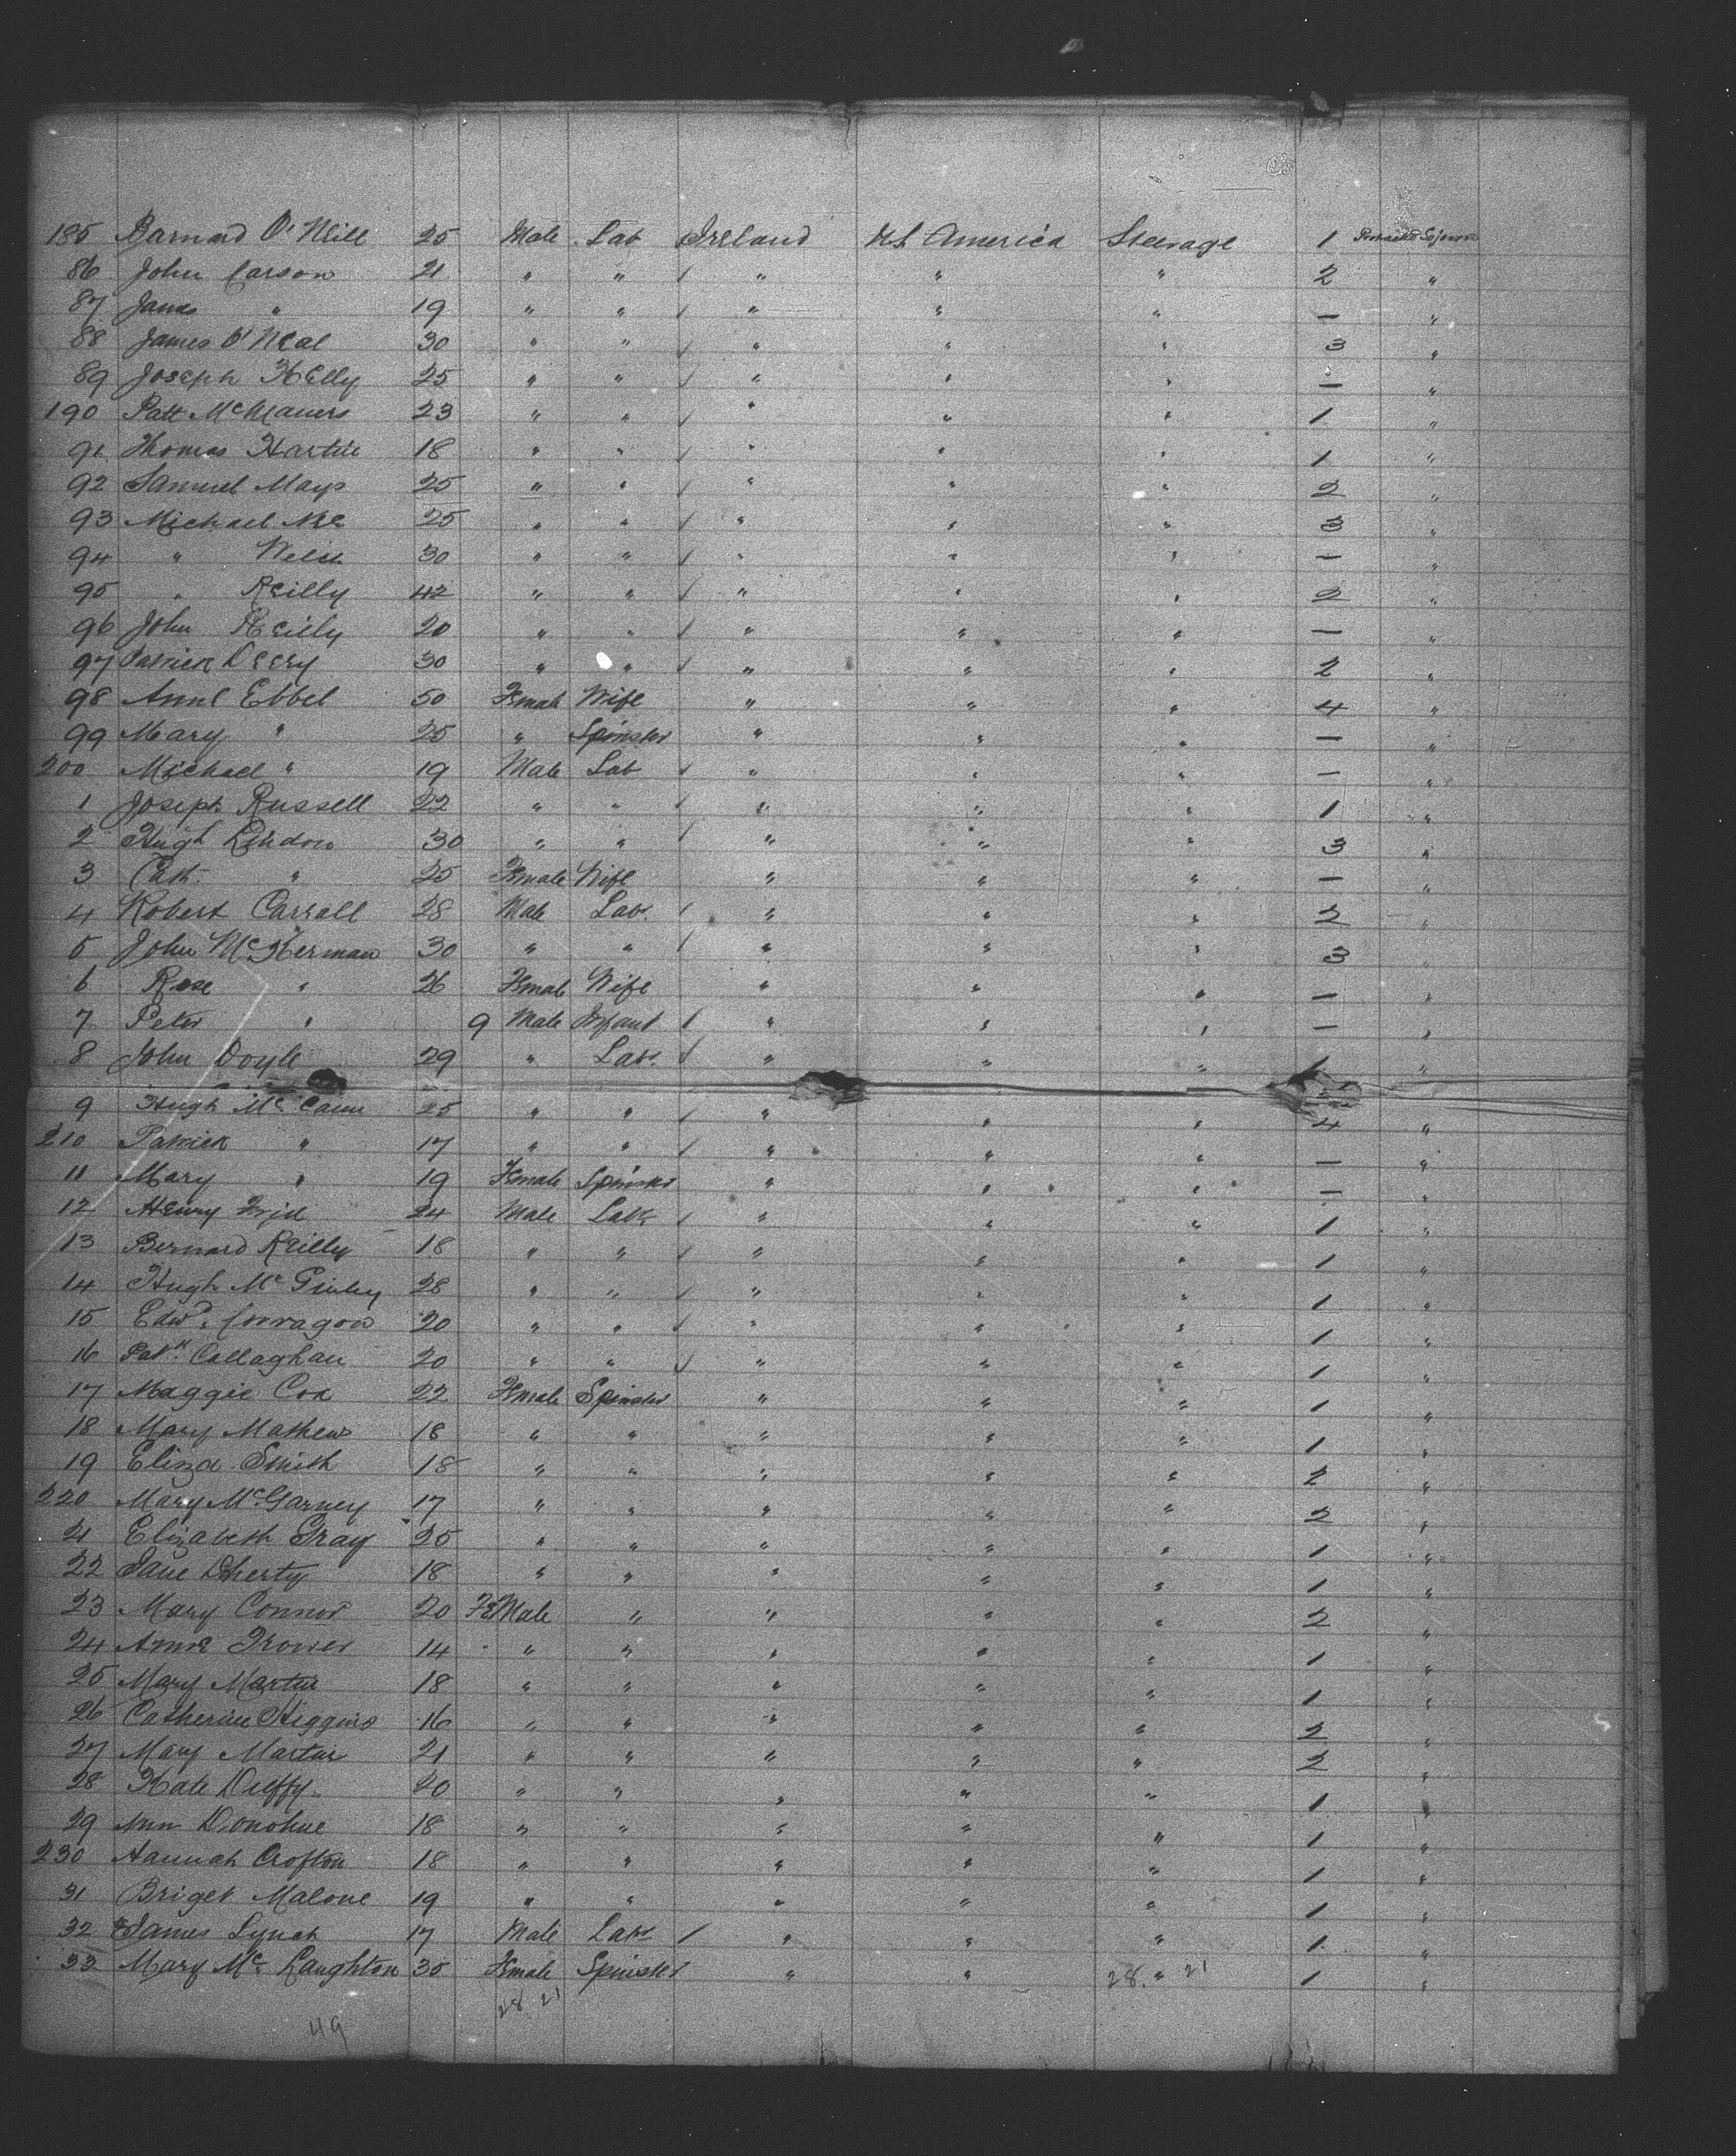 185 Barnard O'Neill 25 Male Lab Ireland US America Steerage 1 Protracted Sojourn
86 John Carson 21 " " " " " 2 "
87 James " 19 " " " " " — "
88 James O'Neal 30 " " " " " 3 "
89 Joseph Kelly 25 " " " " " — "
190 Patt 23 " " " " " 1 "
91 Thomas 18 " " " " " 1 "
92 Samuel Mays 25 " " " " " 2 "
93 Michael Mc 25 " " " " " 3 "
94 " Welsh 30 " " " " " — "
95 " Reilly 42 " " " " " 2 "
96 John Reilly 20 " " " " " — "
97 Patrick Deery 30 " " " " " 2 "
98 Anne Ebbel 50 Female Wife " " " 4 "
99 Mary " 25 " Spinster " " " — "
200 Michael " 19 Male Lab " " " — "
1 Joseph Russell 22 " " " " " 1 "
2 Hugh Lindon 30 " " " " " 3 "
3 Cath. " 25 Female Wife " " " — "
4 Robert Carrall 28 Male Labr " " " 2 "
5 John McKerman 30 " " " " " 3 "
6 Rose " 26 Female Wife " " " — "
7 Peter " 9 Male Infant " " " — "
8 John Doyle 29 " Labr " " " 1 "
9 Hugh McCann 25 " " " " " 4 "
210 Patrick " 17 " " " " " — "
11 Mary " 19 Female Spinster " " " — "
12 Henry 24 Male Labr " " " 1 "
13 Bernard Reilly 18 " " " " " 1 "
14 Hugh McGinley 28 " " " " " 1 "
15 Edwd. Corragon 20 " " " " " 1 "
16 Patk. Callaghan 20 " " " " " 1 "
17 Maggie Cox 22 Female Spinster " " " 1 "
18 Mary Mathews 18 " " " " " 1 "
19 Eliza Smith 18 " " " " " 2 "
220 Mary McGarney 17 " " " " " 2 "
21 Elizabeth Gray 25 " " " " " 1 "
22 Jane Doherty 18 " " " " " 1 "
23 Mary Connor 20 FeMale " " " " 2 "
24 Anne Trower 14 " " " " " 1 "
25 Mary Martin 18 " " " " " 1 "
26 Catherine Higgins 16 " " " " " 2 "
27 Mary Martin 21 " " " " " 2 "
28 Kate Duffy 20 " " " " " 1 "
29 Ann Donohue 18 " " " " " 1 "
230 Hannah Crofton 18 " " " " " 1 "
31 Briget Malone 19 " " " " " 1 "
32 James Lynch 17 Male Labr " " " 1 "
33 Mary Mc Laughton 35 Female Spinster " " 28 " 21 1 "
28 21
49